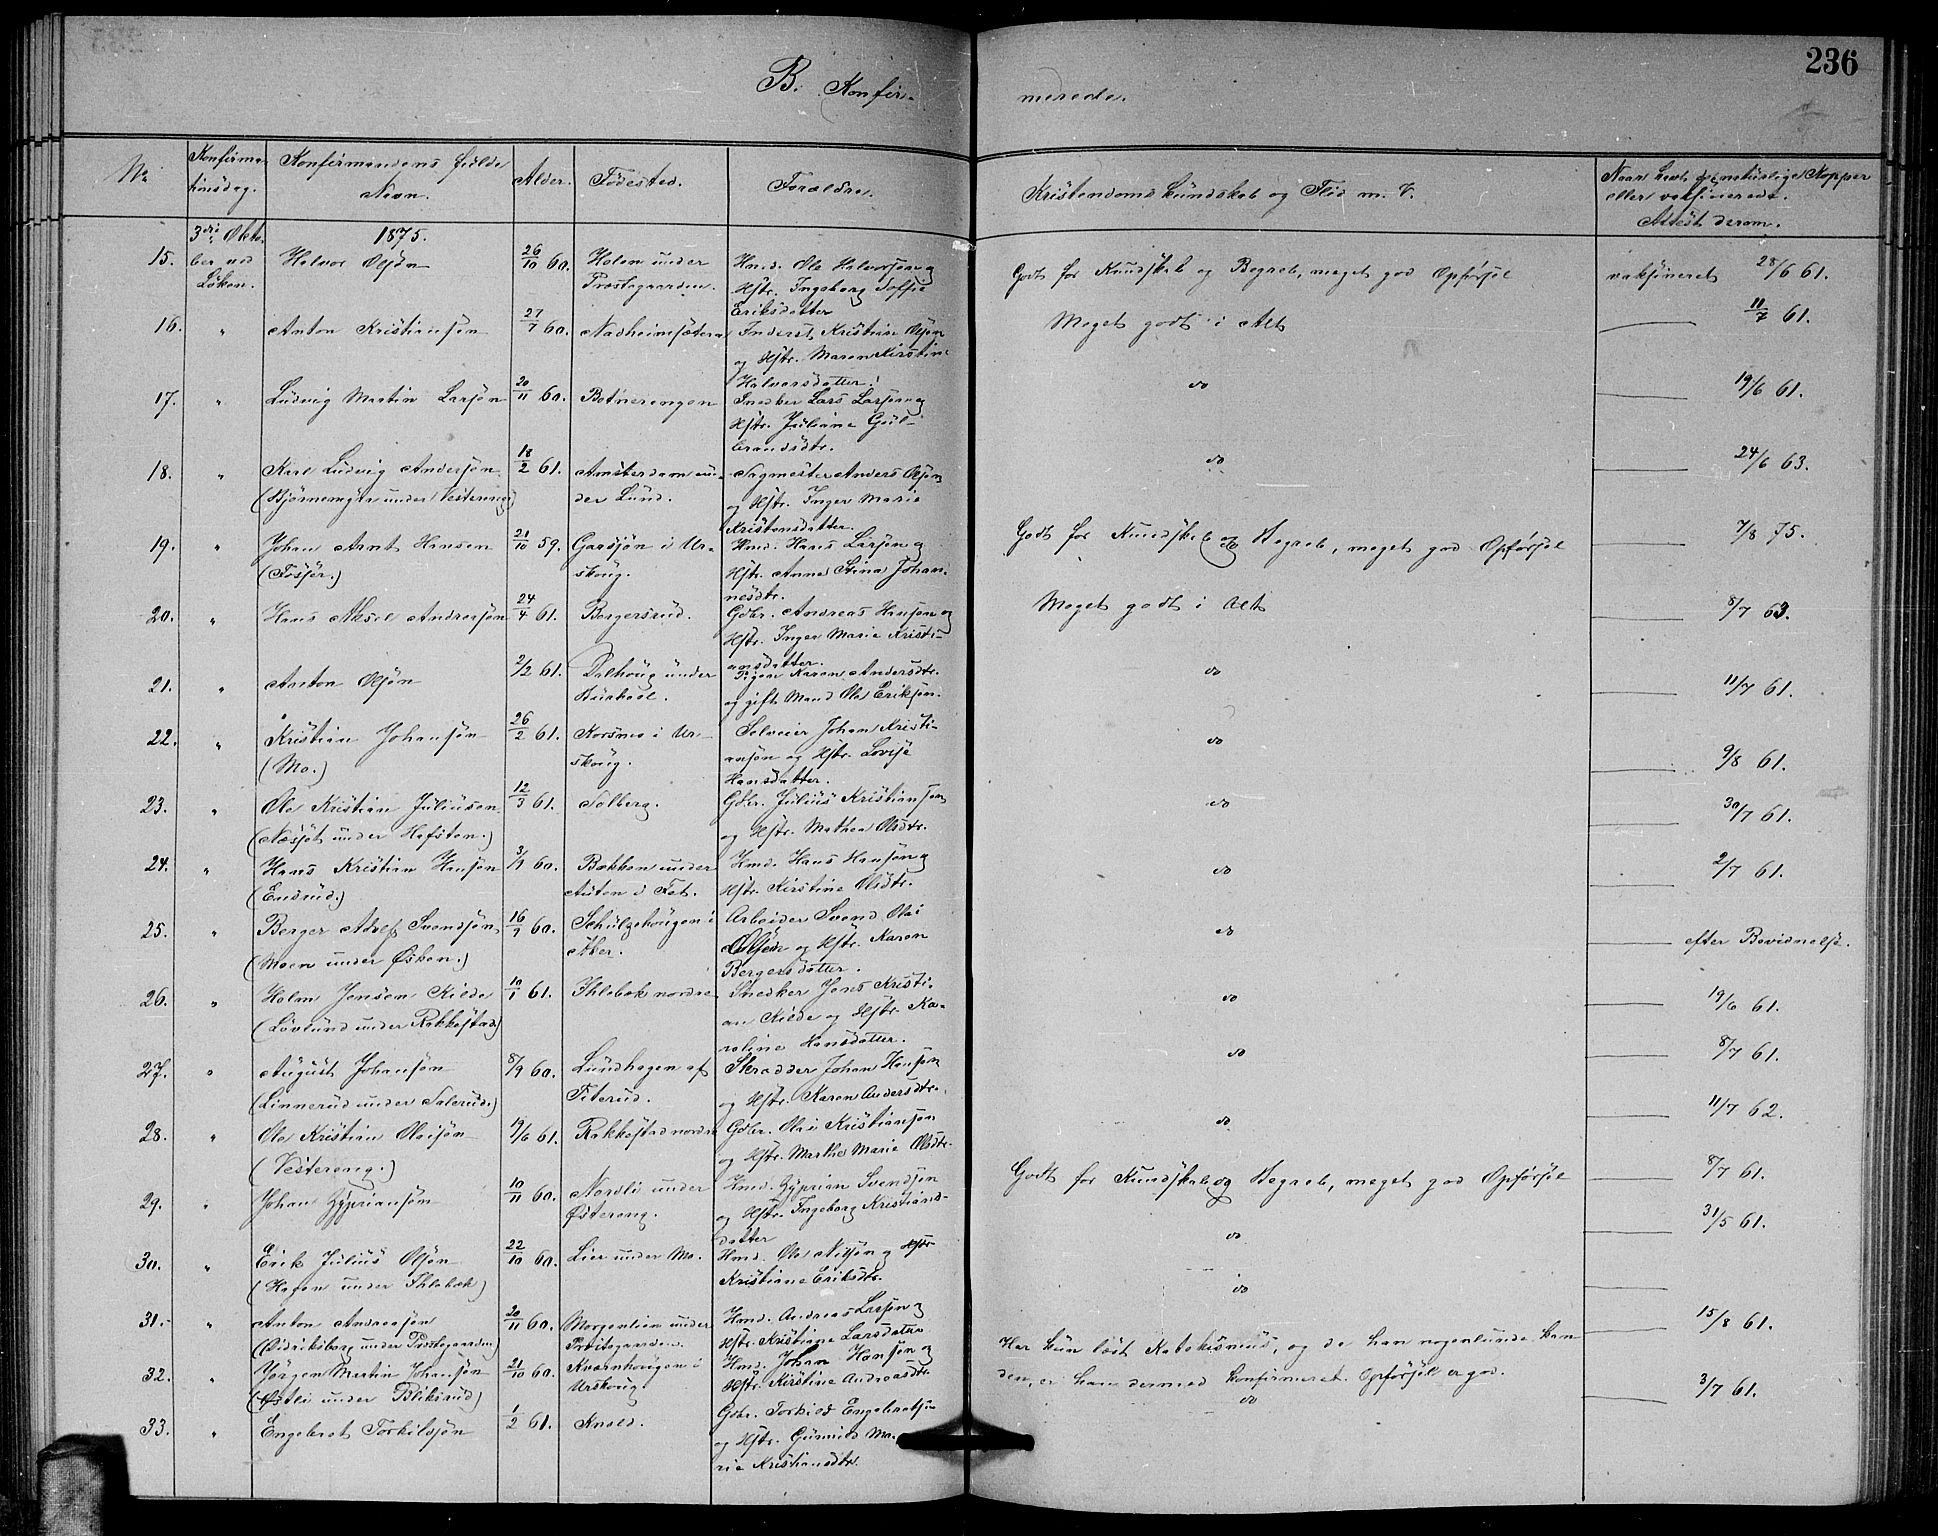 236
B. Konfir-
merede.
No
Konfirma-
tionsdag.
Konfirmandens fulde
Navn.
Alder.
Fødested.
Forældre.
Kristendoms Kundskab og Flid m. V.
Naar havt de naturlige Kopper
eller vaksinerede.
Attest derom.
3die Okto-
ber ved
Løken.
1875.
15. Halvor Olsøn 26/10 60. Holen under
Præstegaarden.
Hmd. Ole Halvorsøn og
Hstr. Ingeborg Sofie
Eriksdatter
Godt for Kundskab og Begreb, meget god Opførsel
vaksineret 28/6 61.
16. " Anton Kristiansøn 27/7 60.
Inderst Kristian Olsøn
og Hstr. Maren Kirstine
Halvorsdatter.
Meget godt i Alt
11/7 61.
17. " Ludvig Martin Larsøn 20/11 60. Botnerengen
Snedker Lars Larsøn og
Hstr. Juliane Gul-
brandsdtr.
do
19/6 61.
18. " Karl Ludvig Andersøn
(Bjørnemyra under Vestereng)
18/2 61. Amsterdam un-
der Lund.
Sagmester Anders Olsøn
og Hstr. Inger Marie
Kristensdatter.
do
24/6 63.
19. " Johan Arnt Hansen
(Fosser.)
21/10 59. Garsjøn i Ur-
skoug.
Hmd. Hans Larsøn og
Hstr. Anne Stina Johan-
nesdtr.
Godt for Kundskab og Begreb, meget god Opførsel
7/8 75.
20. " Hans Aksel Andreasøn 24/4 61. Bergersrud.
Gdbr. Andreas Hansøn og
Hstr. Inger Marie Kristi-
ansdatter.
Meget godt i Alt
8/7 63.
21. " Anton Olsøn 2/2 61. Dalhoug under
Pigen Karen Andersdtr.
og gift Mand Ole Eriksøn.
do
11/7 61.
22. " Kristian Johansøn
(Mo.)
26/2 61. Korsmo i Ur-
skoug.
Selveier Johan Kristi-
ansøn og Hstr. Lovise
Hansdatter.
do
9/8 61.
23. " Ole Kristian Juliusen
(Næsset under Hafsten.)
12/3 61. Solberg.
Gdbr. Julius Kristiansøn
og Hstr. Mathea Olsdtr.
do
30/7 61.
24. " Hans Kristian Hansøn
(Ensrud.)
3/9 60. Bakken under
Auten i Fet.
Hmd. Hans Hansøn og
Hstr. Kirstine Olsdtr.
do
2/7 61.
25. " Berger Adolf Svendsøn
(Moen under Østen.)
16/7 60. Schulzehougen i
Aker.
Arbeider Svend Olai
Olsøn og Hstr. Karen
Bergersdatter.
do
efter Bevidnelse.
26. " Holm Jensen Kilde
(Løvlund under Rakkestad)
10/1 61. Ihlebæk nordre
Snedker Jens Kristi-
an Kilde og Hstr. Ka-
roline Hansdatter.
do
19/6 61.
27. " August Johansøn
(Linnerud under Salerud.)
8/9 60. Lundhagen af
Titerud.
Skrædder Johan Hansøn
og Hstr. Karen Andersdtr.
do
8/7 61.
28. " Ole Kristian Olaisøn
(Vestereng.)
19/6 61. Rakkestad nordre
Gdbr. Olai Kristiansøn
og Hstr. Marthe Marie Olsdtr.
do
11/7 62.
29. " Johan Zypriansøn 10/11 60. Nordli under
Østereng.
Hmd. Zyprian Svendsøn
og Hstr. Ingeborg Kristians-
datter
Godt for Kundskab og Begreb, meget god Opførsel
8/7 61.
30. " Erik Julius Olsøn
(Hagen under Ihlebæk)
22/10 60. Lier under Mo.
Hmd. Ole Nilsøn og Hstr.
Kristiane Eriksdtr.
do
31/5 61.
31. " Anton Andreasøn
(Didriksborg under Præstegaarden)
20/11 60. Morgenlien under
Præstegaarden.
Hmd. Andreas Larsøn og
Hstr. Kristiane Larsdatter
do
15/8 61.
32. " Jørgen Martin Johansøn
(Østli under Bliksrud)
21/10 60. Kværnhougen i
Urskoug.
Hmd. Johan Hansøn og
Hstr. Kirstine Andreasdtr.
Har kun læst Katekismus, og da han nogenlunde kan
den, er han dermed konfirmeret. Opførsel er god.
3/7 61.
33. " Engebret Torkilsøn 1/2 61. Knold.
Gdbr. Torkild Engebretsøn
og Hstr. Gunild Ma-
rie Kristiansdtr.
do